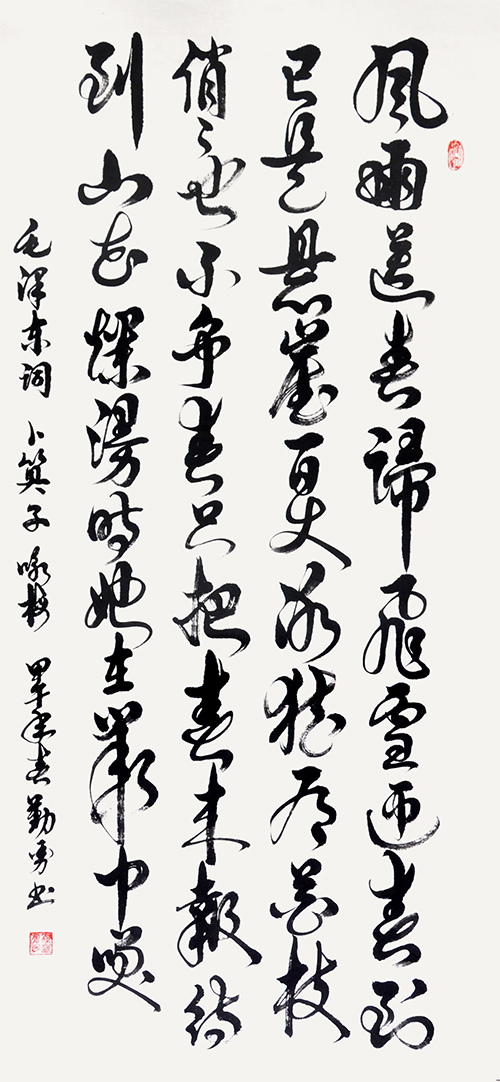 風雨送春歸飛雪迎春到
已是懸崖百丈冰猶有花枝
俏〻也不争春只把春来報待
到山花爛漫時她在叢中笑
毛澤東詞 卜算子 咏梅 甲午年春勤勇书